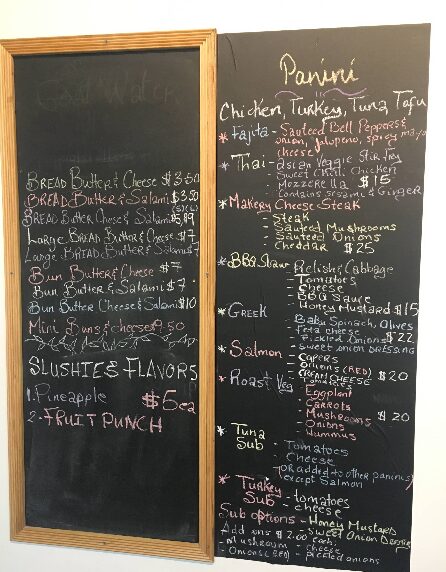 BREAD Butter & Cheese $3.50
BREAD Butter & Salami $3.50
BREAD Butter Cheese & Salami $5.89
Large BREAD Butter & Cheese $7
Large BREAD Butter & Salami $7
Bun Butter & Cheese $7
Bun Butter & Salami $7
Bun Butter Cheese & Salami $10
Mini Buns & cheese 9.50
SLUSHIE & FLAVORS
1. Pineapple $5ea
2- FRUIT PUNCH
Panini
Chicken, Turkey, Tuna Tofu
* Fajita - Sauteed Bell Peppers &
onion, jalopeno, spicy mayo
cheese
* Thai - Asian Veggie Stir Fry
- Sweet Chili Chicken
- Mozzerella $15
- Contains Sesame & Ginger
* Makery Cheese Steak
- Steak
- Sauteed Mushrooms
- Sauteed Onions
- Cheddar $25
* BBQ Slaw - Relish & Cabbage
- Tomatoes
- Cheese
- BBQ Sauce
- Honey Mustard $15
* Greek - Baby Spinach, Olives
- Feta cheese
- Pickled Onions $22
- Sweet onion DRESSING
* Salmon - CAPERS
- Onions (RED)
- CREAM CHEESE $20
* Roast Veg - Tomatoes
- Eggplant
- Carrots
- Mushrooms $20
- Onions
- Hummus
* Tuna
Sub - Tomatoes
- Cheese
(or added to other paninis)
(except Salmon)
* Turkey
Sub - tomatoes
- cheese
Sub options - Honey Mustard
- Sweet Onion
Add ons $2.00 each
- Mushroom - cheese
- Onions - pickled onions